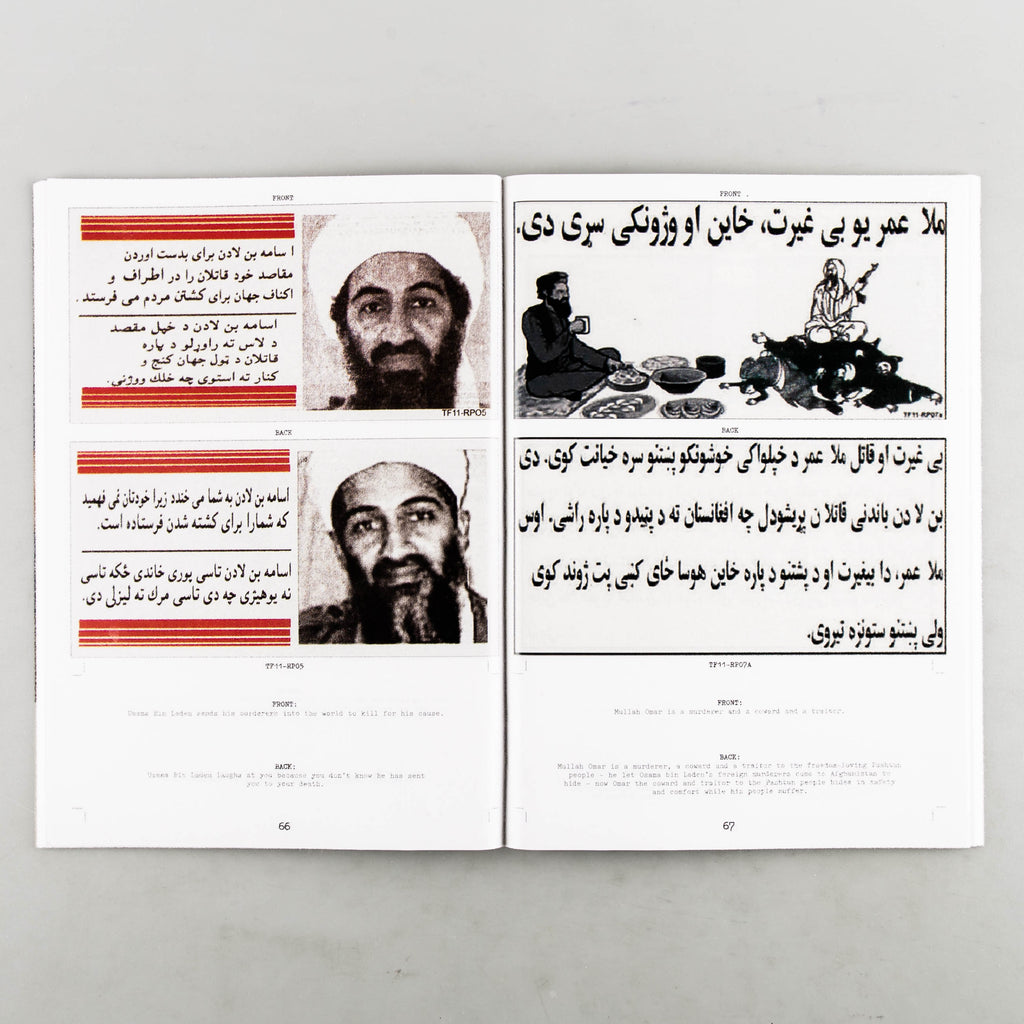 FRONT
ا سامه بن لادن برای بدست اوردن
مقاصد خود قاتلان را در اطراف و
اکناف جهان برای کشتن مردم می فرستد .
اسامه بن لادن د خپل مقصد
د لاس ته راوړلو د پاره
قاتلان د ټول جهان کنج و
کنار ته استوی چه خلك ووژنی.
TF11-RP05
BACK
اسامه بن لادن به شما می خندد زیرا خودتان نمی فهمید
که شمارا برای کشته شدن فرستاده است.
اسامه بن لادن تاسی پوری خاندی ځکه تاسی
نه پوهیږی چه دی تاسی مرك ته لیزلی دی.
TF11-RP05
FRONT:
Usama Bin Laden sends his murderers into the world to kill for his cause.
BACK:
Usama Bin Laden laughs at you because you don't know he has sent
you to your death.
66
FRONT .
ملا عمر یو بی غیرت، خاین او وژونکی سړی دی.
TF11-RP07a
BACK
بی غیرت او قاتل ملا عمر د خپلواکی خوشونکو پښتنو سره خیانت کوی. دی
بن لا دن باندنی قاتلا ن پریشودل چه افغانستان ته د پتیدو د پاره راشی. اوس
ملا عمر، دا بیغیرت او د پشتنو د پاره خاین هوسا ځای کښی پت ژوند کوی
ولی پښتنو ستونزه تیروی.
TF11-RP07A
FRONT:
Mullah Omar is a murderer and a coward and a traitor.
BACK:
Mullah Omar is a murderer, a coward and a traitor to the freedom-loving Pashtun
people - he let Osama bin Laden's foreign murderers come to Afghanistan to
hide - now Omar the coward and traitor to the Pashtun people hides in safety
and comfort while his people suffer.
67